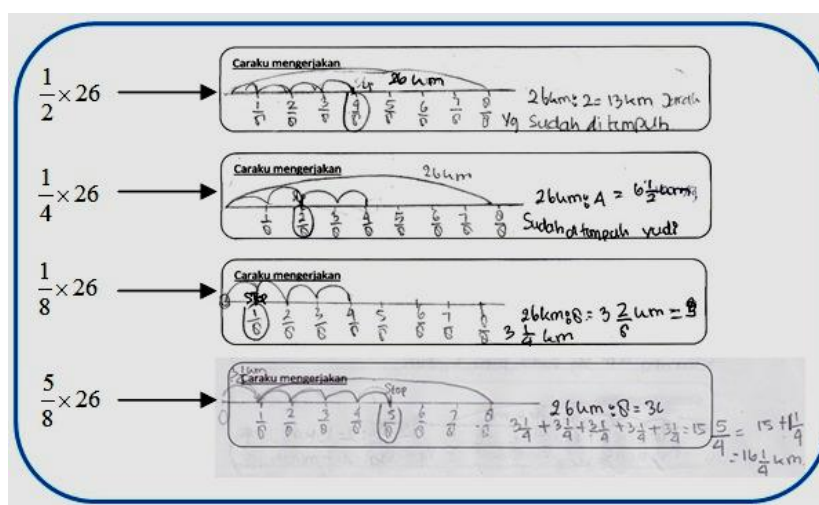 1/2 × 26
Caraku mengerjakan
26 km
1/8 2/8 3/8 4/8 5/8 6/8 7/8 8/8
26km : 2 = 13 km
Yg Sudah ditempuh
1/4 × 26
Caraku mengerjakan
26km
1/8 2/8 3/8 4/8 5/8 6/8 7/8 8/8
26km : 4 = 6 1/2
Sudah ditempuh yudi
1/8 × 26
Caraku mengerjakan
Stop
1/8 2/8 3/8 4/8 5/8 6/8 7/8 8/8
26km : 8 = 3 2/8 km =
3 1/4 km
5/8 × 26
Caraku mengerjakan
Stop
0 1/8 2/8 3/8 4/8 5/8 6/8 7/8 8/8
26km : 8 =
3 1/4 + 3 1/4 + 3 1/4 + 3 1/4 + 3 1/4 = 15 5/4 = 15 + 1 1/4
= 16 1/4 km